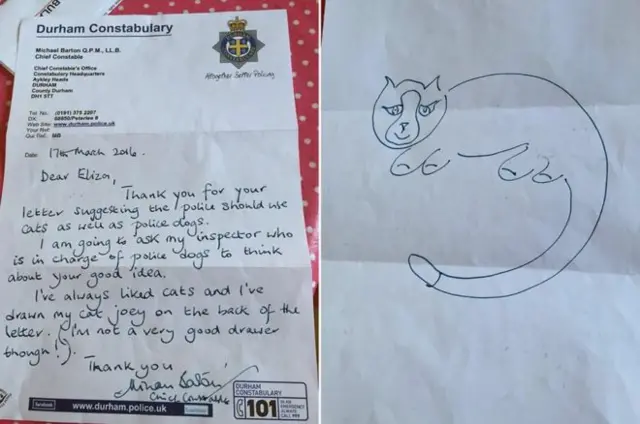 Durham Constabulary
Michael Barton Q.P.M., LL.B.
Chief Constable
Altogether Better Policing
Chief Constable's Office
Constabulary Headquarters
Aykley Heads
DURHAM
County Durham
DH1 5TT
Tel No: (0191) 375 2207
DX: 68950/Peterlee 6
Web Site: www.durham.police.uk
Your Ref:
Our Ref: MB
Date: 17th March 2016.
Dear Eliza,
Thank you for your
letter suggesting the police should use
cats as well as police dogs.
I am going to ask my inspector who
is in charge of police dogs to think
about your good idea.
I've always liked cats and I've
drawn my cat joey on the back of the
letter. (I'm not a very good drawer
though!).
Thank you
Chief Constable
www.durham.police.uk
DURHAM
CONSTABULARY
101
IN AN
EMERGENCY
ALWAYS
CALL 999